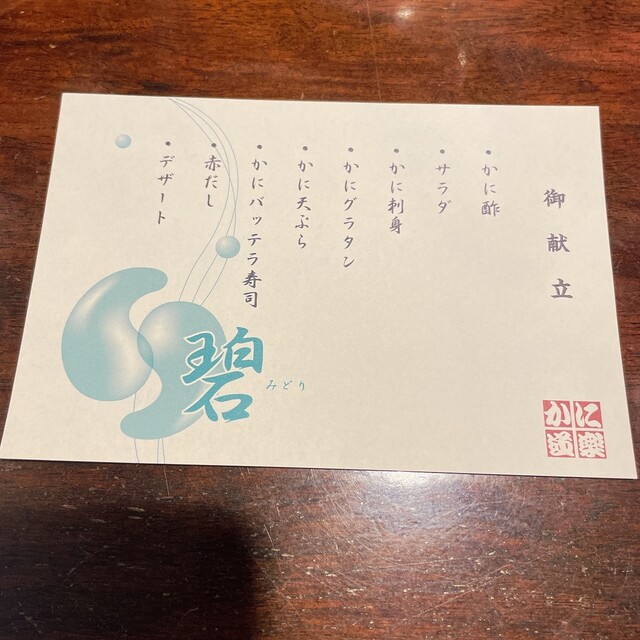 御献立
・かに酢
・サラダ
・かに刺身
・かにグラタン
・かに天ぷら
・かにバッテラ寿司
・赤だし
・デザート
碧
みどり
かに
道樂